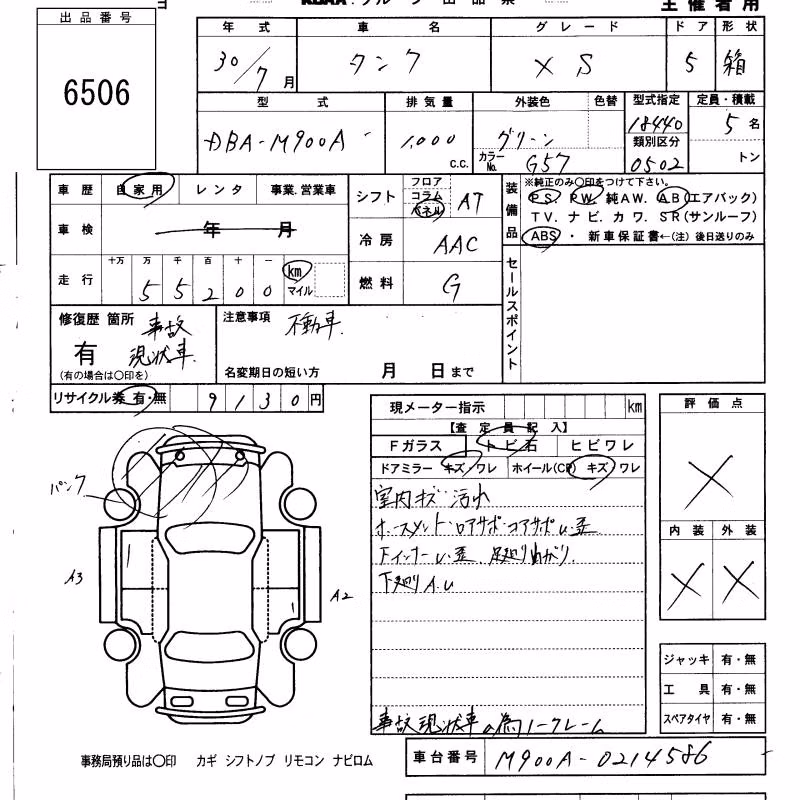 出品番号
6506
主催者用
年式 車名 グレード ドア 形状
30/7月 タンク XS 5 箱
型式 排気量 外装色 色替 型式指定 定員・積載
DBA-M900A 1,000 c.c. グリーン 18440 5名
カラーNo. G57 類別区分 0502 トン
車歴 自家用 レンタ 事業.営業車
車検 年 月
走行 十万 万 千 百 十 一
55200 km マイル
シフト フロア コラム パネル AT
冷房 AAC
燃料 G
装備品 ※純正のみ〇印をつけて下さい。
PS. PW. 純AW. AB(エアバック)
TV. ナビ. カワ. SR(サンルーフ)
ABS ・ 新車保証書←(注) 後日送りのみ
セールスポイント
修復歴 箇所 事故
有 現状車.
(有の場合は〇印を)
注意事項 不動車.
名変期日の短い方 月 日まで
リサイクル券 有・無 9130円
現メーター指示 km
【査定員記入】
Fガラス トビ石 ヒビワレ
ドアミラー キズ/ワレ ホイール(CP) キズ/ワレ
室内キズ・汚れ
下廻りA.U
事故現状車の為ノークレーム
評価点
X
内装 外装
X X
ジャッキ 有・無
工具 有・無
スペアタイヤ 有・無
パンク
A3
A2
事務局預り品は〇印 カギ シフトノブ リモコン ナビロム
車台番号 M900A-0214586